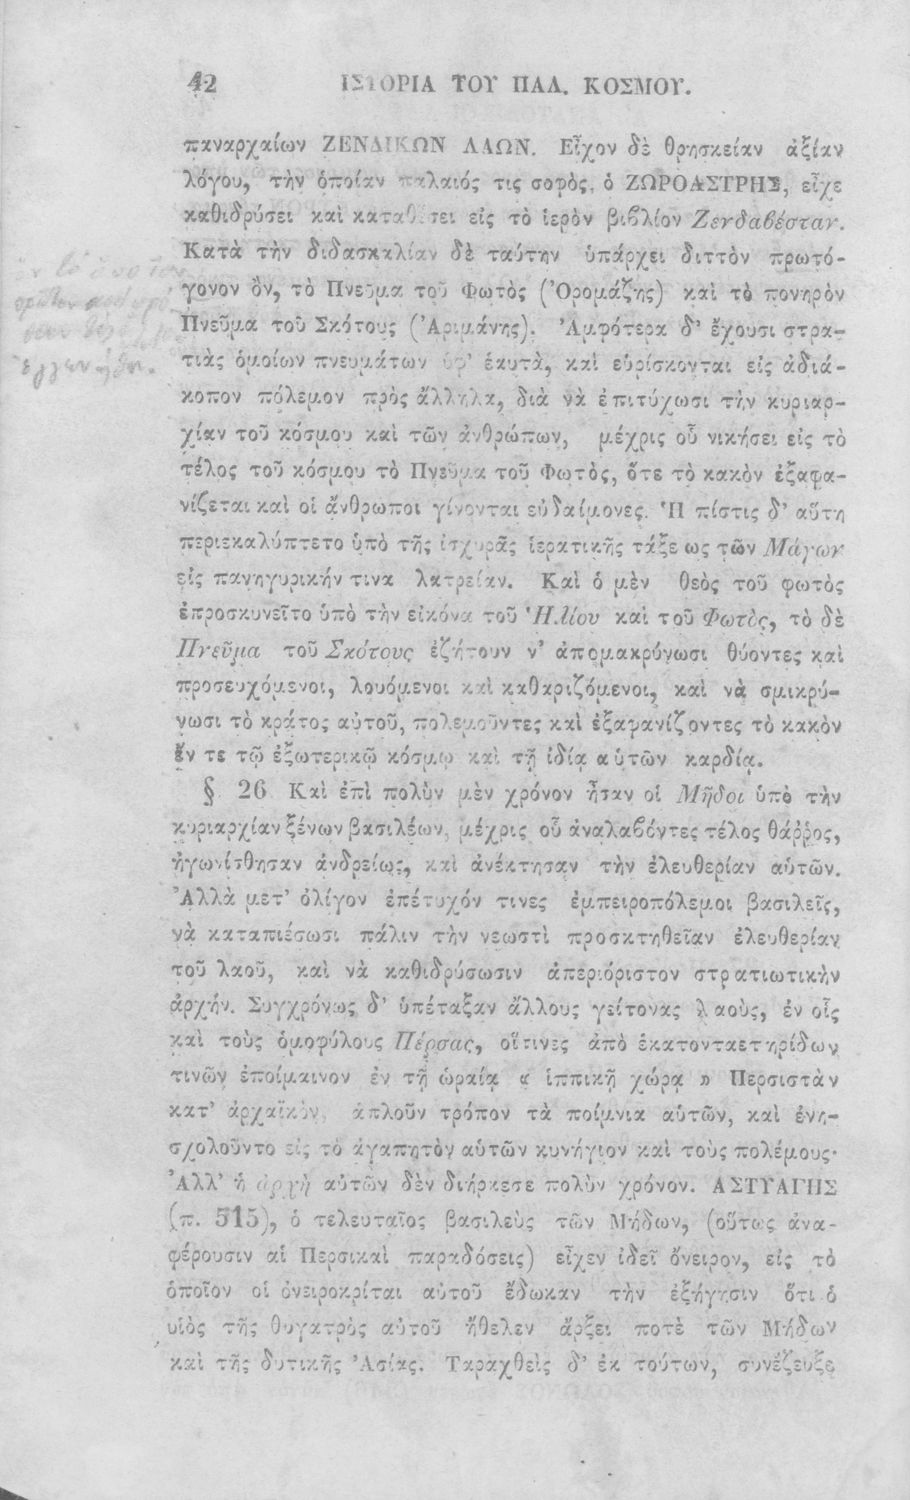 42 ΙΣΤΟΡΙΑ ΤΟΥ ΠΑΛ. ΚΟΣΜΟΥ.
παναρχαίων ΖΕΝΔΙΚΩΝ ΛΑΩΝ. Εἶχον δὲ θρησκείαν ἀξίαν
λόγου, τὴν ὁποίαν παλαιός τις σοφὸς, ὁ ΖΩΡΟΑΣΤΡΗΣ, εἶχε
καθιδρύσει καὶ καταθέσει εἰς τὸ ἱερὸν βιβλίον Ζενδαβέσταν.
Κατὰ τὴν διδασκαλίαν δὲ ταύτην ὑπάρχει διττὸν πρωτό-
γονον ὂν, τὸ Πνεῦμα τοῦ Φωτὸς (Ὀρομάζης) καὶ τὸ πονηρὸν
Πνεῦμα τοῦ Σκότους (Ἀριμάνης). Ἀμφότερα δ' ἔχουσι στρα-
τιὰς ὁμοίων πνευμάτων ὑφ' ἑαυτὰ, καὶ εὑρίσκονται εἰς ἀδιά-
κοπον πόλεμον πρὸς ἄλληλα, διὰ νὰ ἐπιτύχωσι τὴν κυριαρ-
χίαν τοῦ κόσμου καὶ τῶν ἀνθρώπων, μέχρις οὗ νικήσει εἰς τὸ
τέλος τοῦ κόσμου τὸ Πνεῦμα τοῦ Φωτὸς, ὅτε τὸ κακὸν ἐξαφα-
νίζεται καὶ οἱ ἄνθρωποι γίνονται εὐδαίμονες. Ἡ πίστις δ' αὕτη
περιεκαλύπτετο ὑπὸ τῆς ἰσχυρᾶς ἱερατικῆς τάξεως τῶν Μάγων
εἰς πανηγυρικήν τινα λατρείαν. Καὶ ὁ μὲν θεὸς τοῦ φωτὸς
ἐπροσκυνεῖτο ὑπὸ τὴν εἰκόνα τοῦ Ἡλίου καὶ τοῦ Φωτὸς, τὸ δὲ
Πνεῦμα τοῦ Σκότους ἐζήτουν ν' ἀπομακρύνωσι θύοντες καὶ
προσευχόμενοι, λουόμενοι καὶ καθαριζόμενοι, καὶ νὰ σμικρύ-
νωσι τὸ κράτος αὐτοῦ, πολεμοῦντες καὶ ἐξαφανίζοντες τὸ κακὸν
ἔν τε τῷ ἐξωτερικῷ κόσμῳ καὶ τῇ ἰδίᾳ αὑτῶν καρδίᾳ.
§ 26 Καὶ ἐπὶ πολὺν μὲν χρόνον ἦσαν οἱ Μῆδοι ὑπὸ τὴν
κυριαρχίαν ξένων βασιλέων, μέχρις οὗ ἀναλαβόντες τέλος θάῤῥος,
ἠγωνίσθησαν ἀνδρείως, καὶ ἀνέκτησαν τὴν ἐλευθερίαν αὑτῶν.
Ἀλλὰ μετ' ὀλίγον ἐπέτυχόν τινες ἐμπειροπόλεμοι βασιλεῖς,
νὰ καταπιέσωσι πάλιν τὴν νεωστὶ προσκτηθεῖαν ἐλευθερίαν
τοῦ λαοῦ, καὶ νὰ καθιδρύσωσιν ἀπεριόριστον στρατιωτικὴν
ἀρχήν. Συγχρόνως δ' ὑπέταξαν ἄλλους γείτονας λαοὺς, ἐν οἷς
καὶ τοὺς ὁμοφύλους Πέρσας, οἵτινες ἀπὸ ἑκατονταετηρίδων
τινῶν ἐποίμαινον ἐν τῇ ὡραίᾳ « ἱππικῇ χώρᾳ » Περσιστὰν
κατ' ἀρχαϊκὸν, ἁπλοῦν τρόπον τὰ ποίμνια αὑτῶν, καὶ ἐνη-
σχολοῦντο εἰς τὸ ἀγαπητὸν αὑτῶν κυνήγιον καὶ τοὺς πολέμους·
Ἀλλ' ἡ ἀρχὴ αὐτῶν δὲν διήρκεσε πολὺν χρόνον. ΑΣΤΥΑΓΗΣ
(π. 515), ὁ τελευταῖος βασιλεὺς τῶν Μήδων, (οὕτως ἀνα-
φέρουσιν αἱ Περσικαὶ παραδόσεις) εἶχεν ἰδεῖ ὄνειρον, εἰς τὸ
ὁποῖον οἱ ὀνειροκρίται αὐτοῦ ἔδωκαν τὴν ἐξήγησιν ὅτι ὁ
υἱὸς τῆς θυγατρὸς αὐτοῦ ἤθελεν ἄρξει ποτὲ τῶν Μήδων
καὶ τῆς δυτικῆς Ἀσίας. Ταραχθεὶς δ' ἐκ τούτων, συνέζευξε